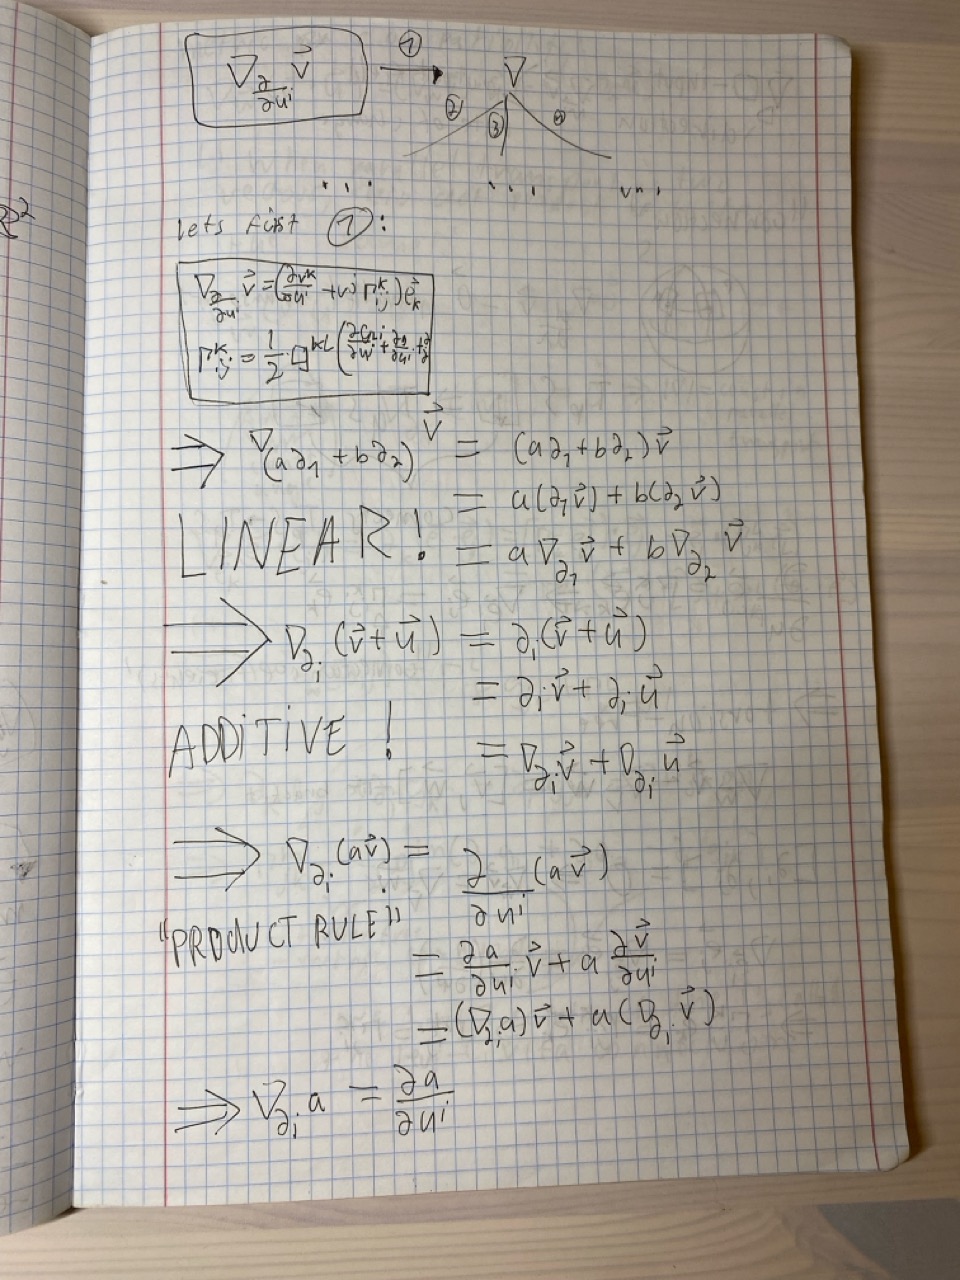 R²
∇_{∂/∂uⁱ} v⃗ ① → ∇
② ③ ④
... ... ...
Lets first ①:
∇_{∂/∂uⁱ} v⃗ = (∂vᵏ/∂uⁱ + vʲ Γᵏᵢⱼ) e⃗ₖ
Γᵏᵢⱼ = 1/2 · g^{kL} (
⇒ ∇_{(a∂₁ + b∂₂)} v⃗ = (a∂₁ + b∂₂) v⃗
= a(∂₁ v⃗) + b(∂₂ v⃗)
LINEAR! = a ∇_{∂₁} v⃗ + b ∇_{∂₂} v⃗
⇒ ∇_{∂ᵢ} (v⃗ + u⃗) = ∂ᵢ (v⃗ + u⃗)
= ∂ᵢ v⃗ + ∂ᵢ u⃗
ADDiTiVE! = ∇_{∂ᵢ} v⃗ + ∇_{∂ᵢ} u⃗
⇒ ∇_{∂ᵢ} (a v⃗) = ∂/∂uⁱ (a v⃗)
"PRODUCT RULE"
= ∂a/∂uⁱ v⃗ + a ∂v⃗/∂uⁱ
= (∇_{∂ᵢ} a) v⃗ + a (∇_{∂ᵢ} v⃗)
⇒ ∇_{∂ᵢ} a = ∂a/∂uⁱ